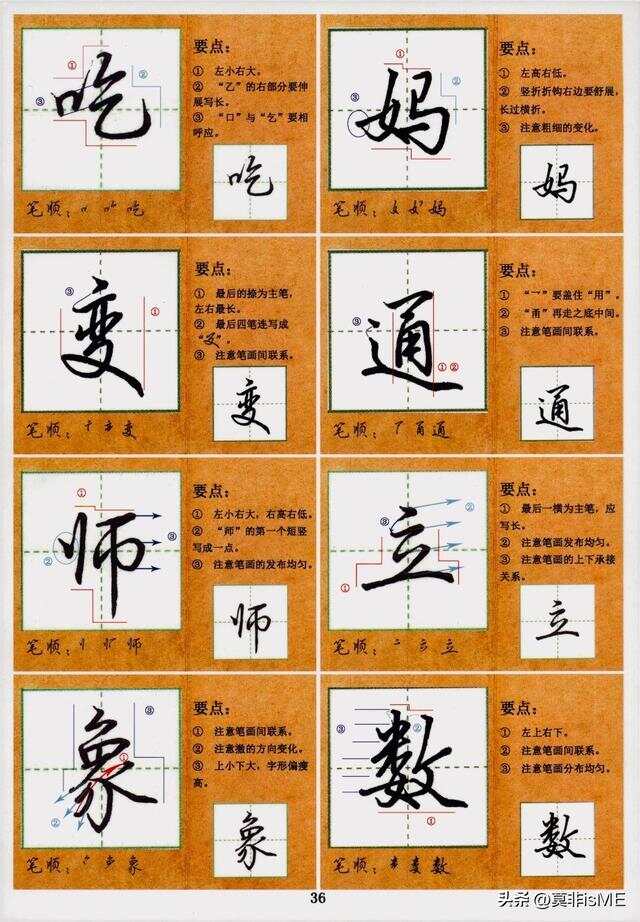 吃
要点：
① 左小右大。
② “乙”的右部分要伸
展写长。
③ “口”与“乞”要相
呼应。
吃
笔顺：吃
妈
要点：
① 左高右低。
② 竖折折钩右边要舒展，
长过横折。
③ 注意粗细的变化。
妈
笔顺：妈
变
要点：
① 最后的捺为主笔，
左右最长。
② 最后四笔连写成
③ 注意笔画间联系。
变
笔顺：变
通
要点：
① “乛”要盖住“用”。
② “甬”再走之底中间。
③ 注意笔画间联系。
通
笔顺：甬通
师
要点：
① 左小右大，右高右低。
② “师”的第一个短竖
写成一点。
③ 注意笔画的发布均匀。
师
笔顺：师
立
要点：
① 最后一横为主笔，应
写长。
② 注意笔画发布均匀。
③ 注意笔画的上下承接
关系。
立
笔顺：立
象
要点：
① 注意笔画间联系，
② 注意撇的方向变化。
③ 上小下大，字形偏瘦
高。
象
笔顺：象
数
要点：
① 左上右下。
② 注意笔画间联系。
③ 注意笔画分布均匀。
数
笔顺：数
36
头条 @莫非isME